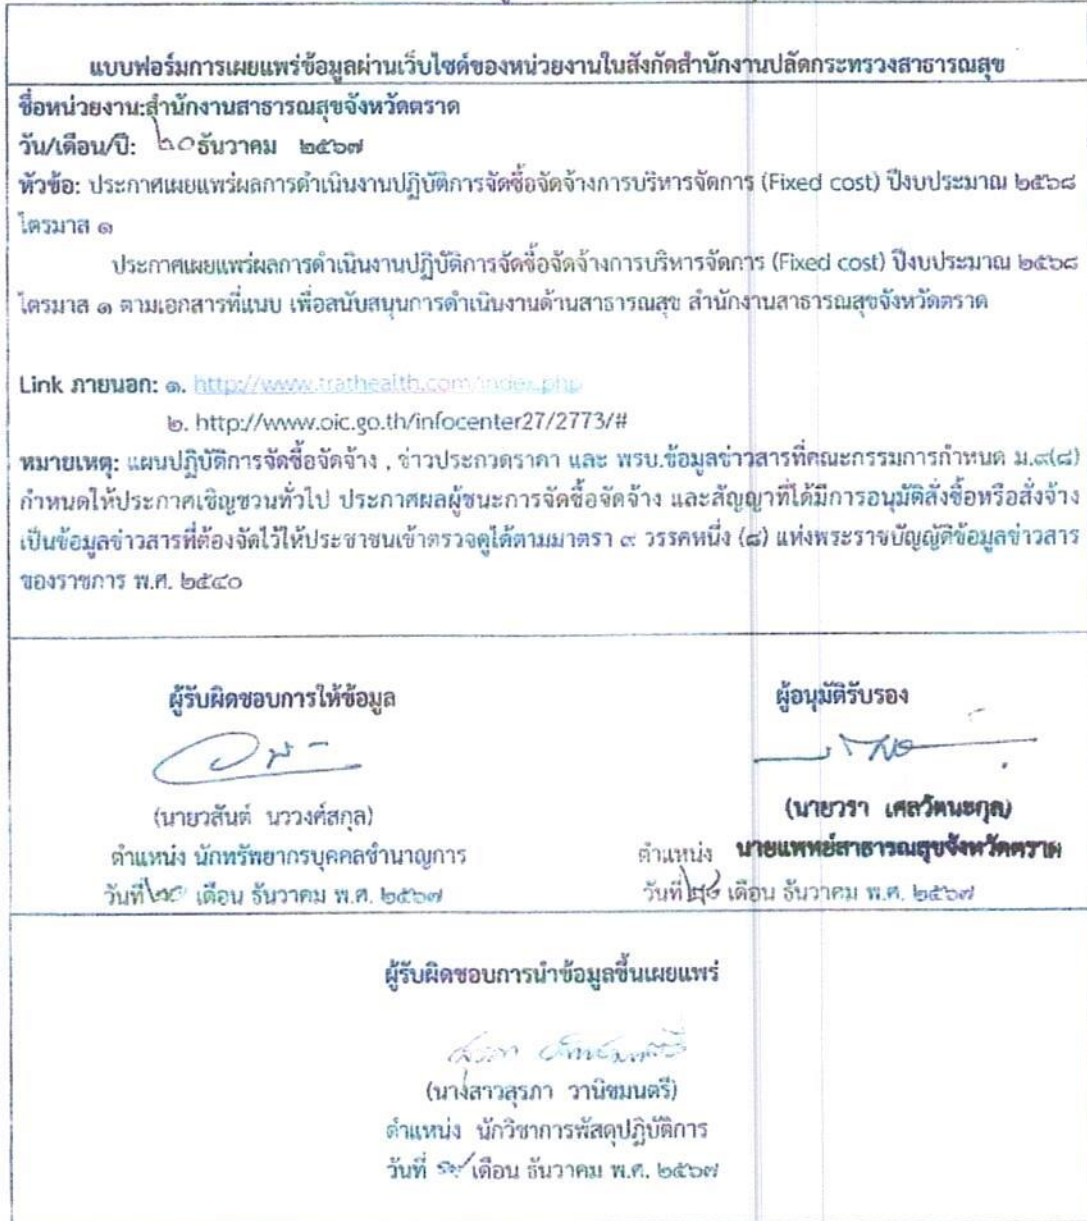 แบบฟอร์มการเผยแพร่ข้อมูลผ่านเว็บไซต์ของหน่วยงานในสังกัดสำนักงานปลัดกระทรวงสาธารณสุข
ชื่อหน่วยงาน:สำนักงานสาธารณสุขจังหวัดตราด
วัน/เดือน/ปี: ๒๐ ธันวาคม ๒๕๖๗
หัวข้อ: ประกาศเผยแพร่ผลการดำเนินงานปฏิบัติการจัดซื้อจัดจ้างการบริหารจัดการ (Fixed cost) ปีงบประมาณ ๒๕๖๘
ไตรมาส ๑
ประกาศเผยแพร่ผลการดำเนินงานปฏิบัติการจัดซื้อจัดจ้างการบริหารจัดการ (Fixed cost) ปีงบประมาณ ๒๕๖๘
ไตรมาส ๑ ตามเอกสารที่แนบ เพื่อสนับสนุนการดำเนินงานด้านสาธารณสุข สำนักงานสาธารณสุขจังหวัดตราด
Link ภายนอก: ๑. http://www.trathealth.com/index.php
๒. http://www.oic.go.th/infocenter27/2773/#
หมายเหตุ: แผนปฏิบัติการจัดซื้อจัดจ้าง , ข่าวประกวดราคา และ พรบ.ข้อมูลข่าวสารที่คณะกรรมการกำหนด ม.๙(๘)
กำหนดให้ประกาศเชิญชวนทั่วไป ประกาศผลผู้ชนะการจัดซื้อจัดจ้าง และสัญญาที่ได้มีการอนุมัติสั่งซื้อหรือสั่งจ้าง
เป็นข้อมูลข่าวสารที่ต้องจัดไว้ให้ประชาชนเข้าตรวจดูได้ตามมาตรา ๙ วรรคหนึ่ง (๘) แห่งพระราชบัญญัติข้อมูลข่าวสาร
ของราชการ พ.ศ. ๒๕๔๐
ผู้รับผิดชอบการให้ข้อมูล
(นายวสันต์ นววงศ์สกุล)
ตำแหน่ง นักทรัพยากรบุคคลชำนาญการ
วันที่ เดือน ธันวาคม พ.ศ. ๒๕๖๗
ผู้อนุมัติรับรอง
(นายวรา เศลวัตนะกุล)
ตำแหน่ง นายแพทย์สาธารณสุขจังหวัดตราด
วันที่ เดือน ธันวาคม พ.ศ. ๒๕๖๗
ผู้รับผิดชอบการนำข้อมูลขึ้นเผยแพร่
(นางสาวสุรภา วานิชมนตรี)
ตำแหน่ง นักวิชาการพัสดุปฏิบัติการ
วันที่ เดือน ธันวาคม พ.ศ. ๒๕๖๗